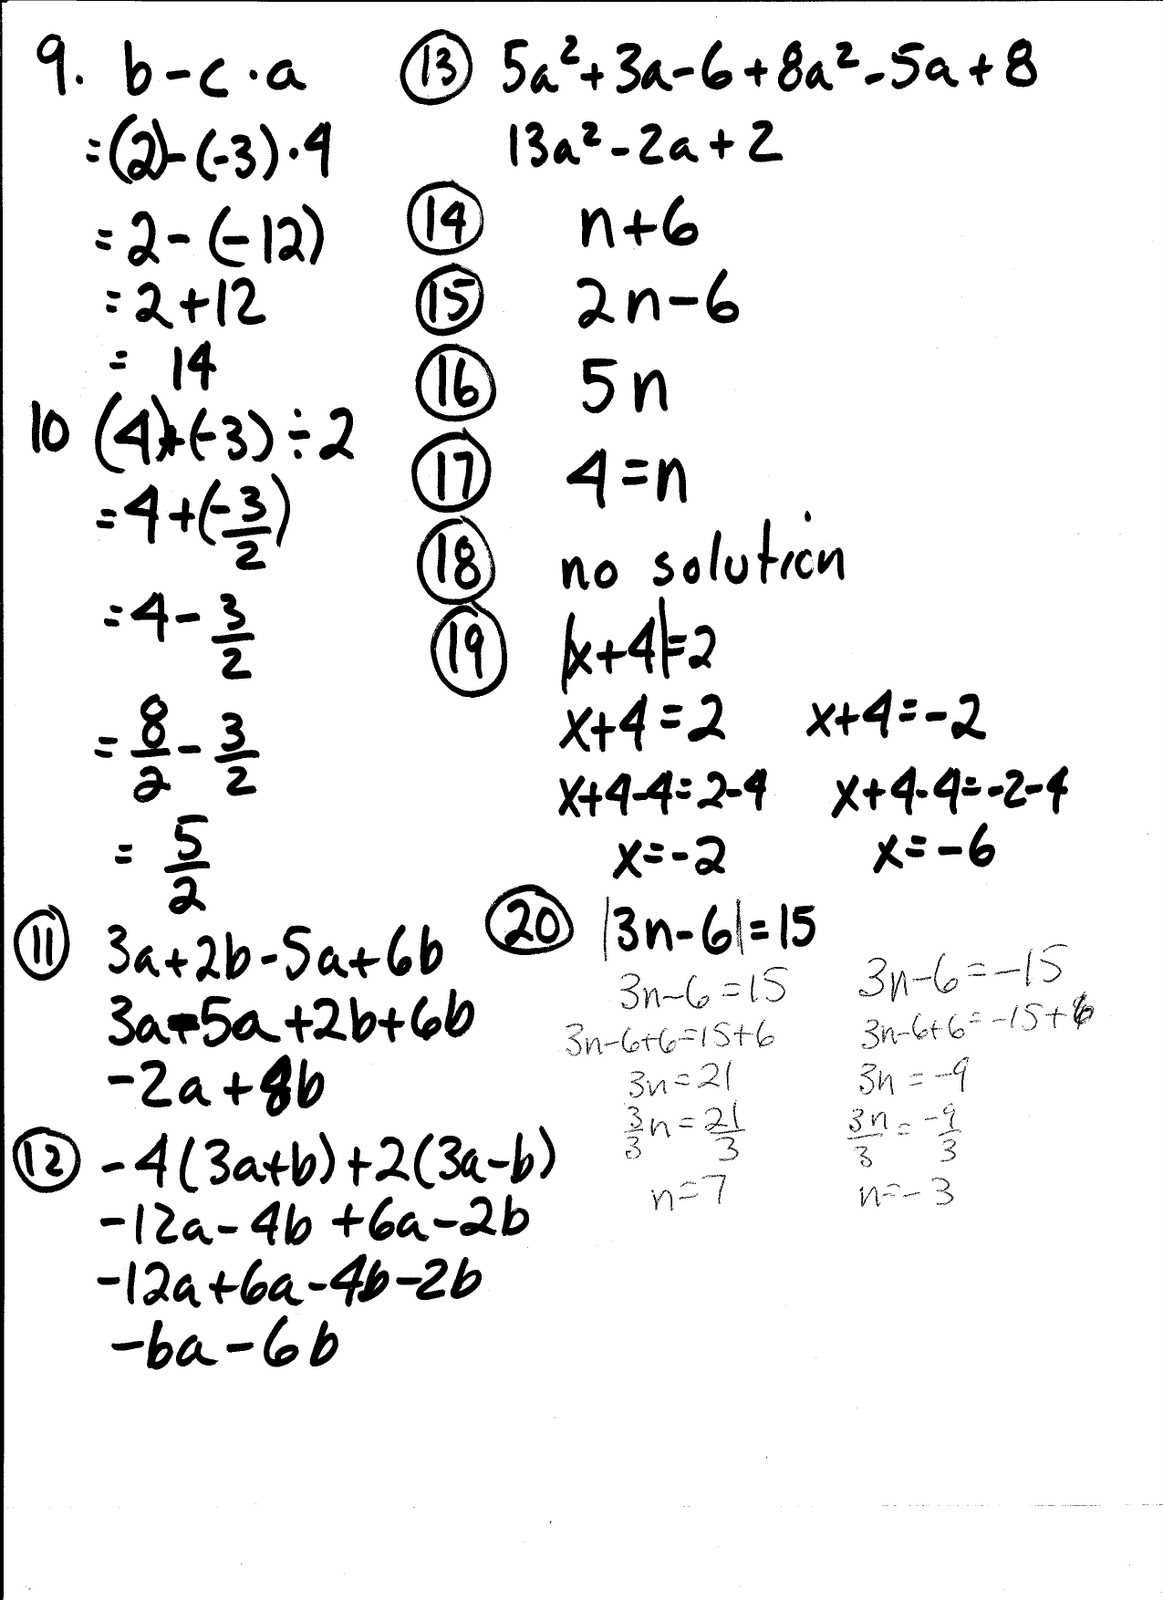 9. b-c·a
=(2)-(-3)·4
=2-(-12)
=2+12
= 14
10 (4)+(-3)÷2
=4+(-3/2)
=4-3/2
=8/2-3/2
=5/2
11 3a+2b-5a+6b
3a-5a+2b+6b
-2a+8b
12 -4(3a+b)+2(3a-b)
-12a-4b+6a-2b
-12a+6a-4b-2b
-6a-6b
13 5a²+3a-6+8a²-5a+8
13a²-2a+2
14 n+6
15 2n-6
16 5n
17 4=n
18 no solution
19 |x+4|=2
x+4=2 x+4=-2
x+4-4=2-4 x+4-4=-2-4
x=-2 x=-6
20 |3n-6|=15
3n-6=15 3n-6=-15
3n-6+6=15+6 3n-6+6=-15+6
3n=21 3n=-9
3/3n=21/3 3n/3=-9/3
n=7 n=-3